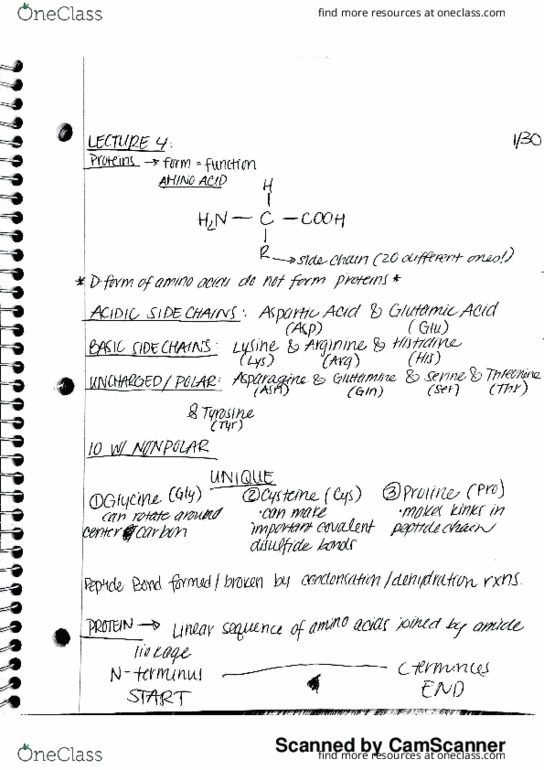 OneClass
find more resources at oneclass.com
LECTURE 4: 1/30
Proteins → form = function
AMINO ACID
H
H₂N — C — COOH
R → side chain (20 different ones!)
* D form of amino acids do not form proteins *
ACIDIC SIDE CHAINS: Aspartic Acid & Glutamic Acid
(Asp) (Glu)
BASIC SIDE CHAINS: Lysine & Arginine & Histidine
(Lys) (Arg) (His)
UNCHARGED/POLAR: Asparagine & Glutamine & Serine & Threonine
(Asn) (Gln) (Ser) (Thr)
& Tyrosine
(Tyr)
10 W/ NONPOLAR
UNIQUE
① Glycine (Gly) ② Cysteine (Cys) ③ Proline (Pro)
can rotate around · can make · makes kinks in
center carbon important covalent peptide chain
disulfide bonds
Peptide Bond formed/broken by condensation/dehydration rxns.
PROTEIN → Linear sequence of amino acids joined by amide
linkage
N-terminus C terminus
START END
Scanned by CamScanner
OneClass
find more resources at oneclass.com